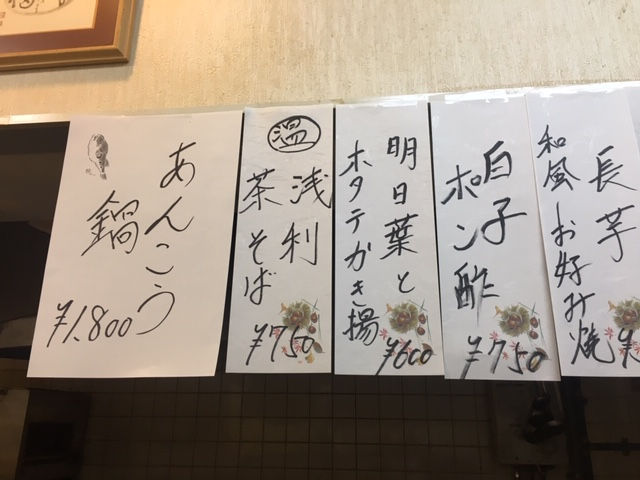 あんこう
鍋
¥1.800
温
浅利
茶そば
¥750
明日葉と
ホタテかき揚
¥600
白子
ポン酢
¥750
長芋
和風お好み焼